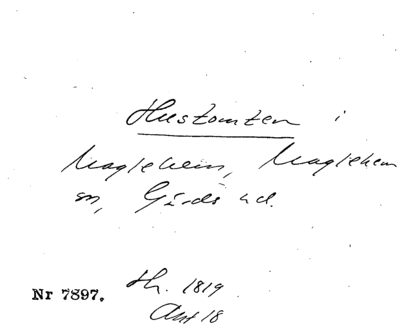 Hustomten i
Maglehem, Maglehem
sn, Gärds hd.
Nr 7897.
Hh. 1819
Ant 18